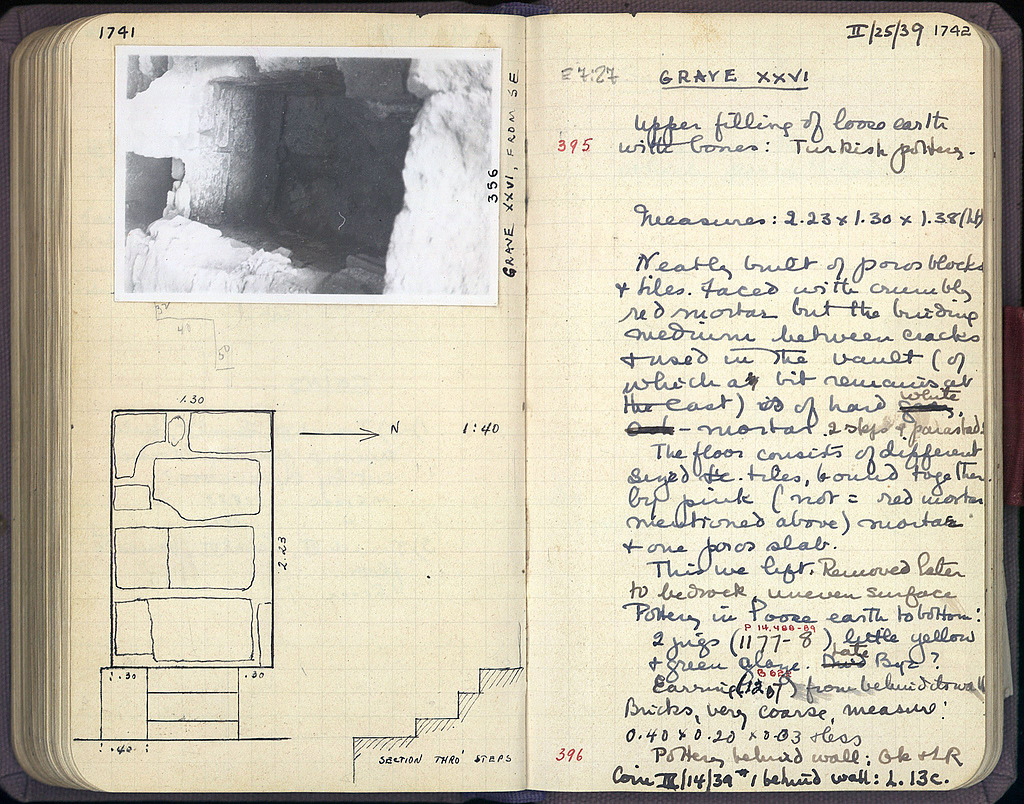 1741
356
GRAVE XXVI, FROM SE
32
40
50
1.30
N
1:40
2.23
.30
.30
.40
SECTION THRO' STEPS
II/25/39 1742
E 7:27
GRAVE XXVI
Upper filling of loose earth
395 with bones: Turkish pottery.
Measures: 2.23 x 1.30 x 1.38
Neatly built of poros blocks
+ tiles. Faced with crumbly
red mortar but the binding
medium between cracks
+ used in the vault (of
which a bit remains at
the East) is of hard white
- mortar. 2 steps + parastads
The floor consists of different
sized tiles, bound together
by pink (not = red mortar
mentioned above) mortar
+ one poros slab.
This we lift. Removed later
to bedrock, uneven surface
Pottery in loose earth to bottom:
P 14,488-89
2 jugs (1177-8) little yellow
+ green glaze. late Byz?
Earring (1207) from behind its wall
Bricks, very coarse, measure:
0.40 x 0.20 x 0.03 + less
396 Pottery behind wall: Gk + LR
Coin III/14/39 #1 behind wall: L. 13c.